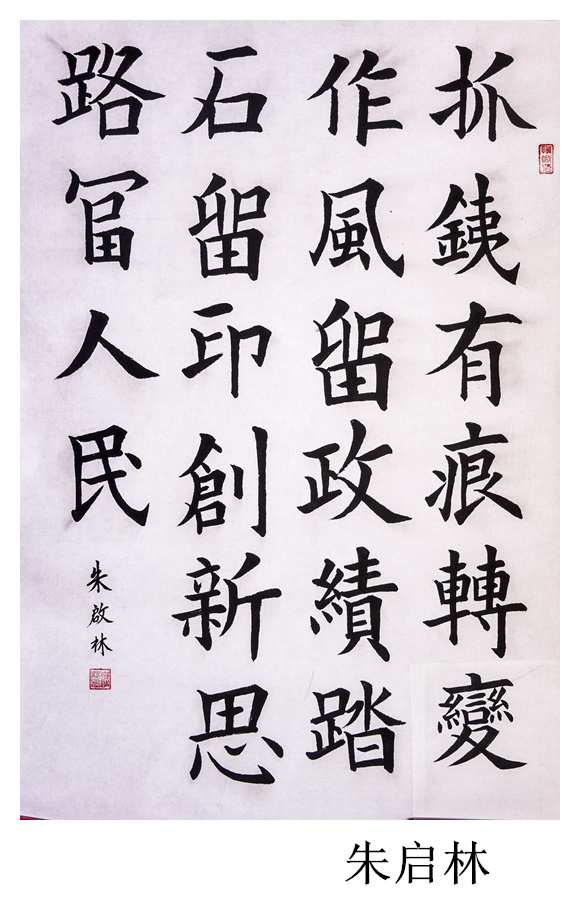 抓銕有痕轉變
作風留政績踏
石留印創新思
路冨人民
朱啟林
朱启林